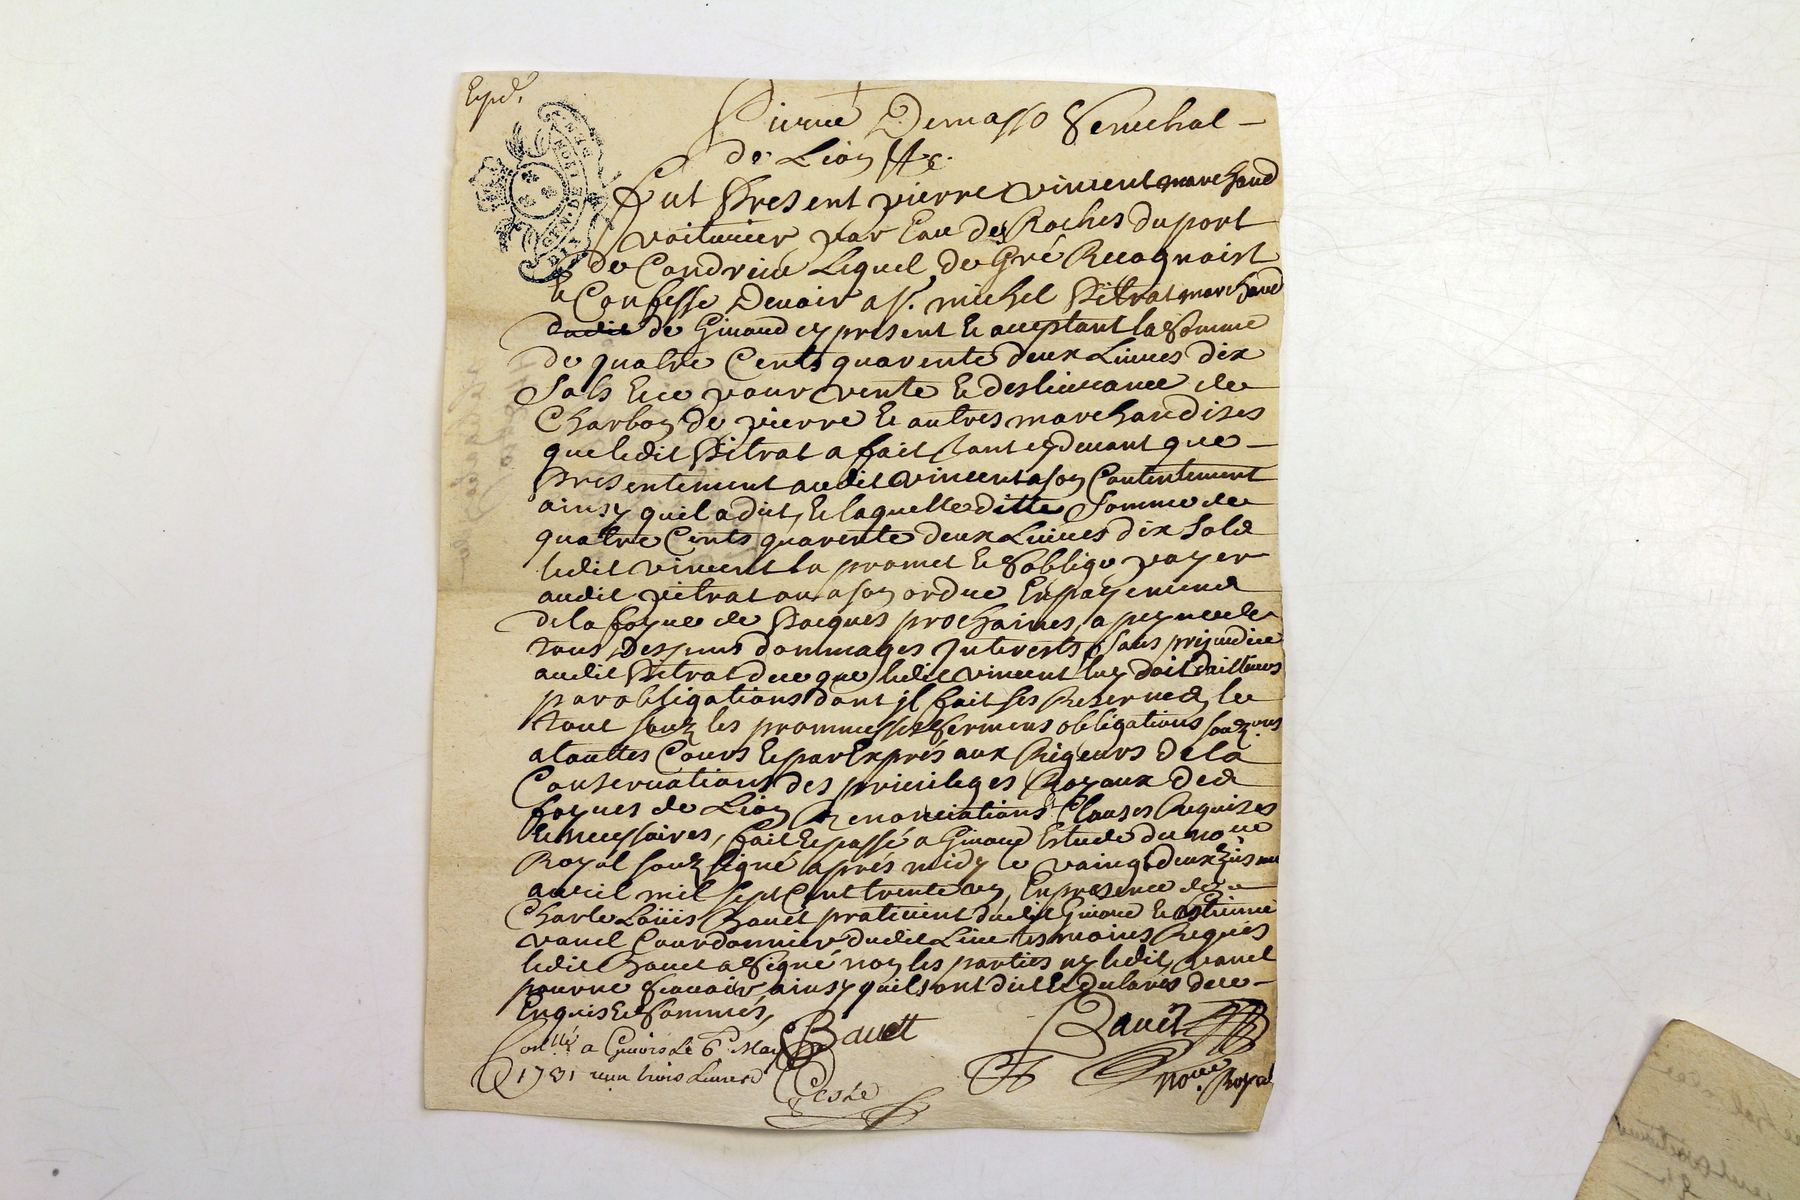 Exped.
Pierre Demasso Senechal
de Lion &c.
Fut Present pierre vincent marchand
voiturier par Eau des Roches du port
de Condrieu Lequel de Gré Recognoist
& Confesse Devoir a sr. michel Pitrat marchand
dudit de Givord cy present & acceptant la Somme
de quatre Cents quarente deux Livres dix
Sols & ce pour vente & deslivrance de
Charbon de pierre & autres marchandises
que ledit Pitrat a fait tant cy devant que
Presentement audit vincent a son Contentement
ainsy quil a dit, & laquelle ditte Somme de
quatre Cents quarente deux Livres dix Sols
ledit vincent la promet & soblige payer
audit pitrat ou a son ordre En payement
de la foyre de Pacques prochaines, a peyne de
tous Despens dommages Interests, sans prejudice
audit Pitrat de ce que ledit vincent luy doit dailleurs
par obligations dont jl fait ses Reserves, le
tout souz les prommesses sermens obligations souz.ons
a touttes Cours & par Exprés aux Rigeurs de la
Conservations des privileges Royaux des
foyres de Lion Renonciations Clauses Requises
& necessaires, fait & passé a Givord Estude du nore
Royal souz signé aprés midy le vaingt deuxziesme
avril mil sept Cent trente un, En presence de
Charle Loüis Bauet praticient dudit Givord & Estienne
vanel Courdonnier dudit Lieu tesmoins Requis
ledit Bauet a signé non les parties ny ledit vanel
pour ne sçavoir, ainsy quils ont dit & declarés de ce
Enquis & sommés,
Bauett
Bauet
nore. Royal
Conllé a Givors Le 6e. May
1731 receu trois Livres